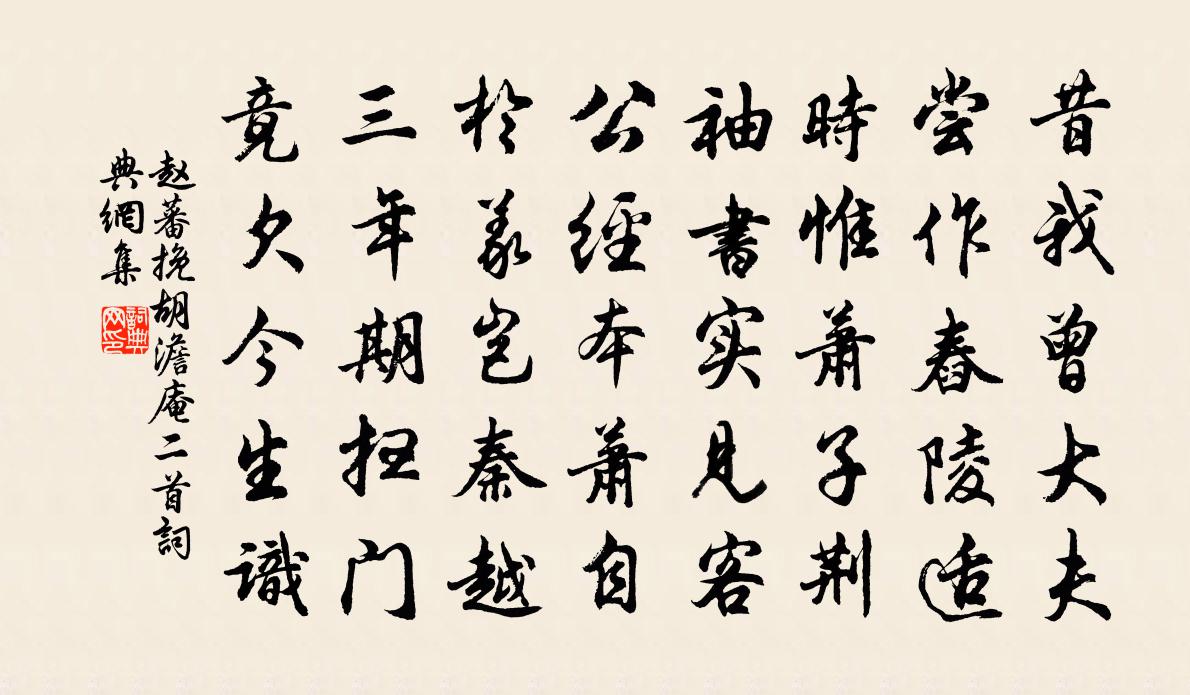 昔我曾大夫
尝作舂陵适
時惟蕭子荆
袖書实見客
公經本蕭自
於義岂秦越
三年期扫门
竟欠今生識
赵蕃挽胡澹庵二首詞
典網集
詞典
网印